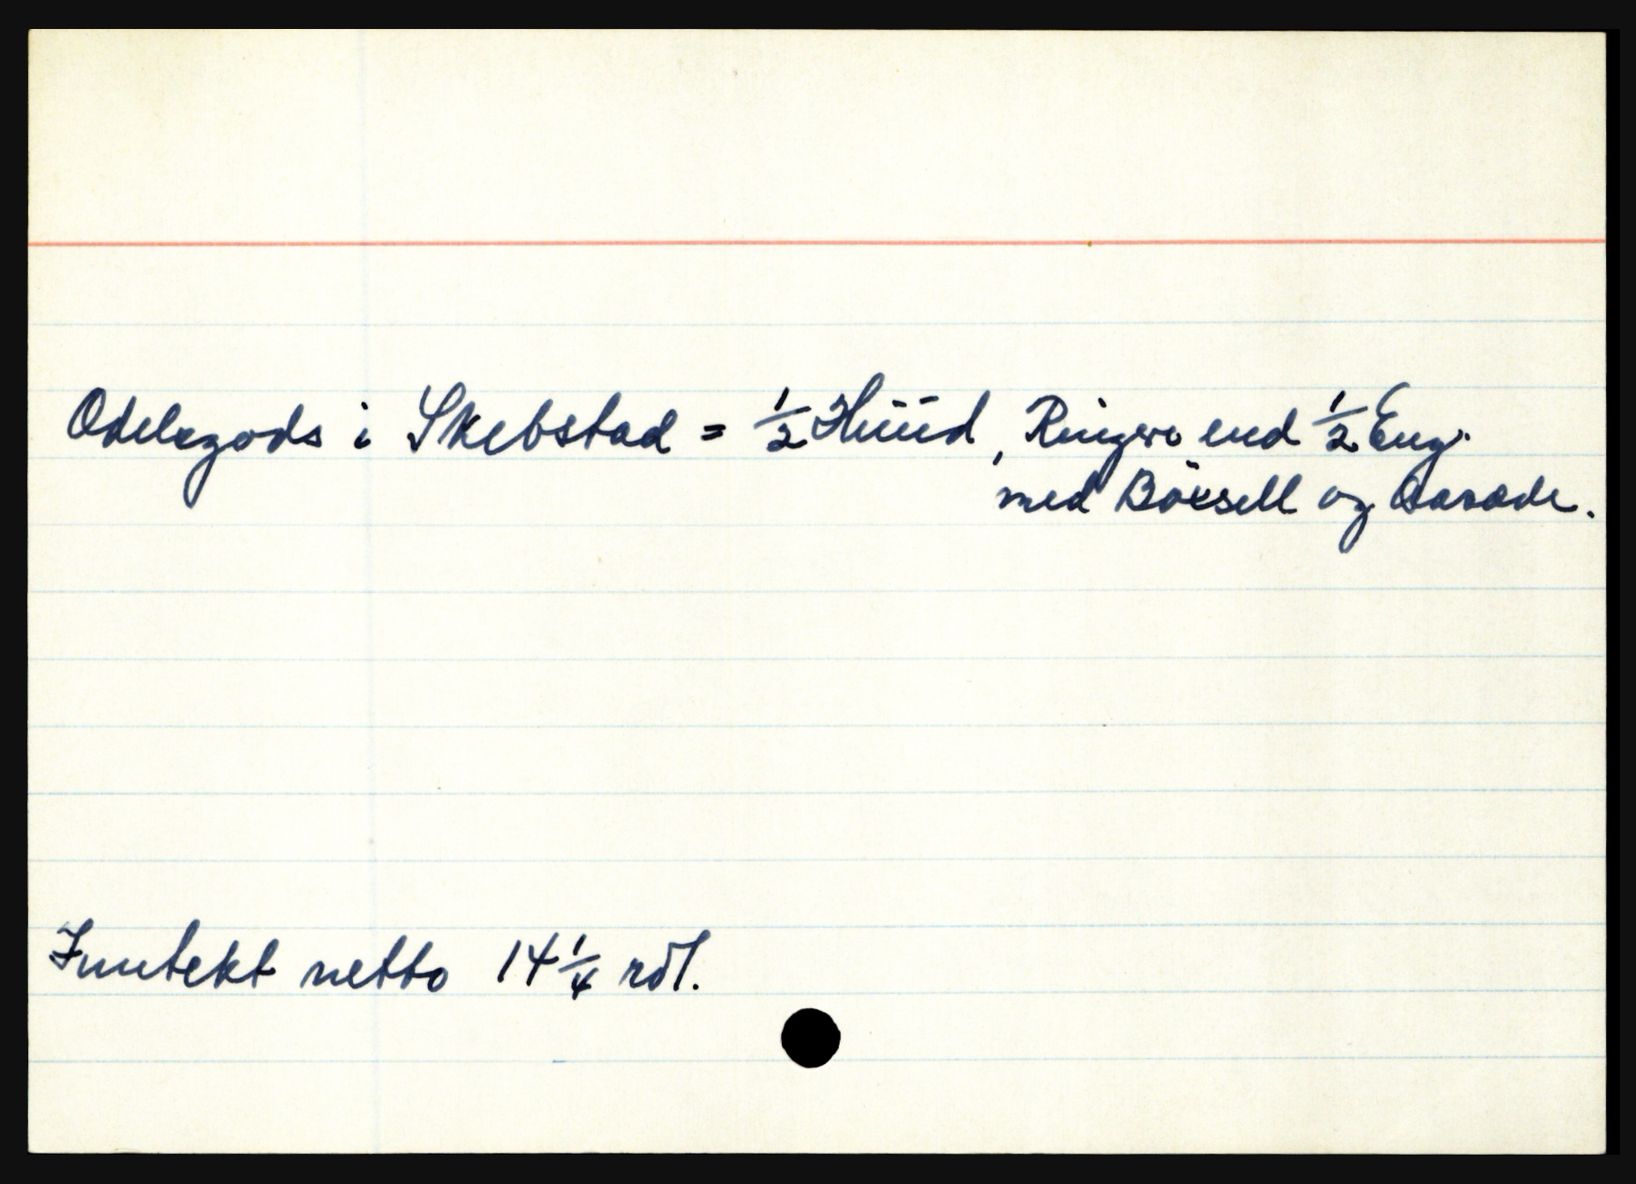 Odelsgods i Skebstad = ½ Hüüd, Ringere end ½ Eng.
med Böxsell og Aaraade.
Inntekt netto 14 ¼ rdl.